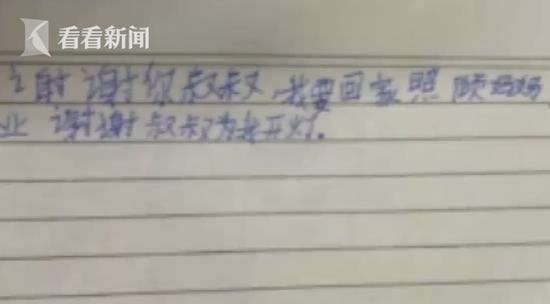 看看新闻
谢谢你叔叔,我要回家照顾妈妈
业 谢谢叔叔为我开灯.